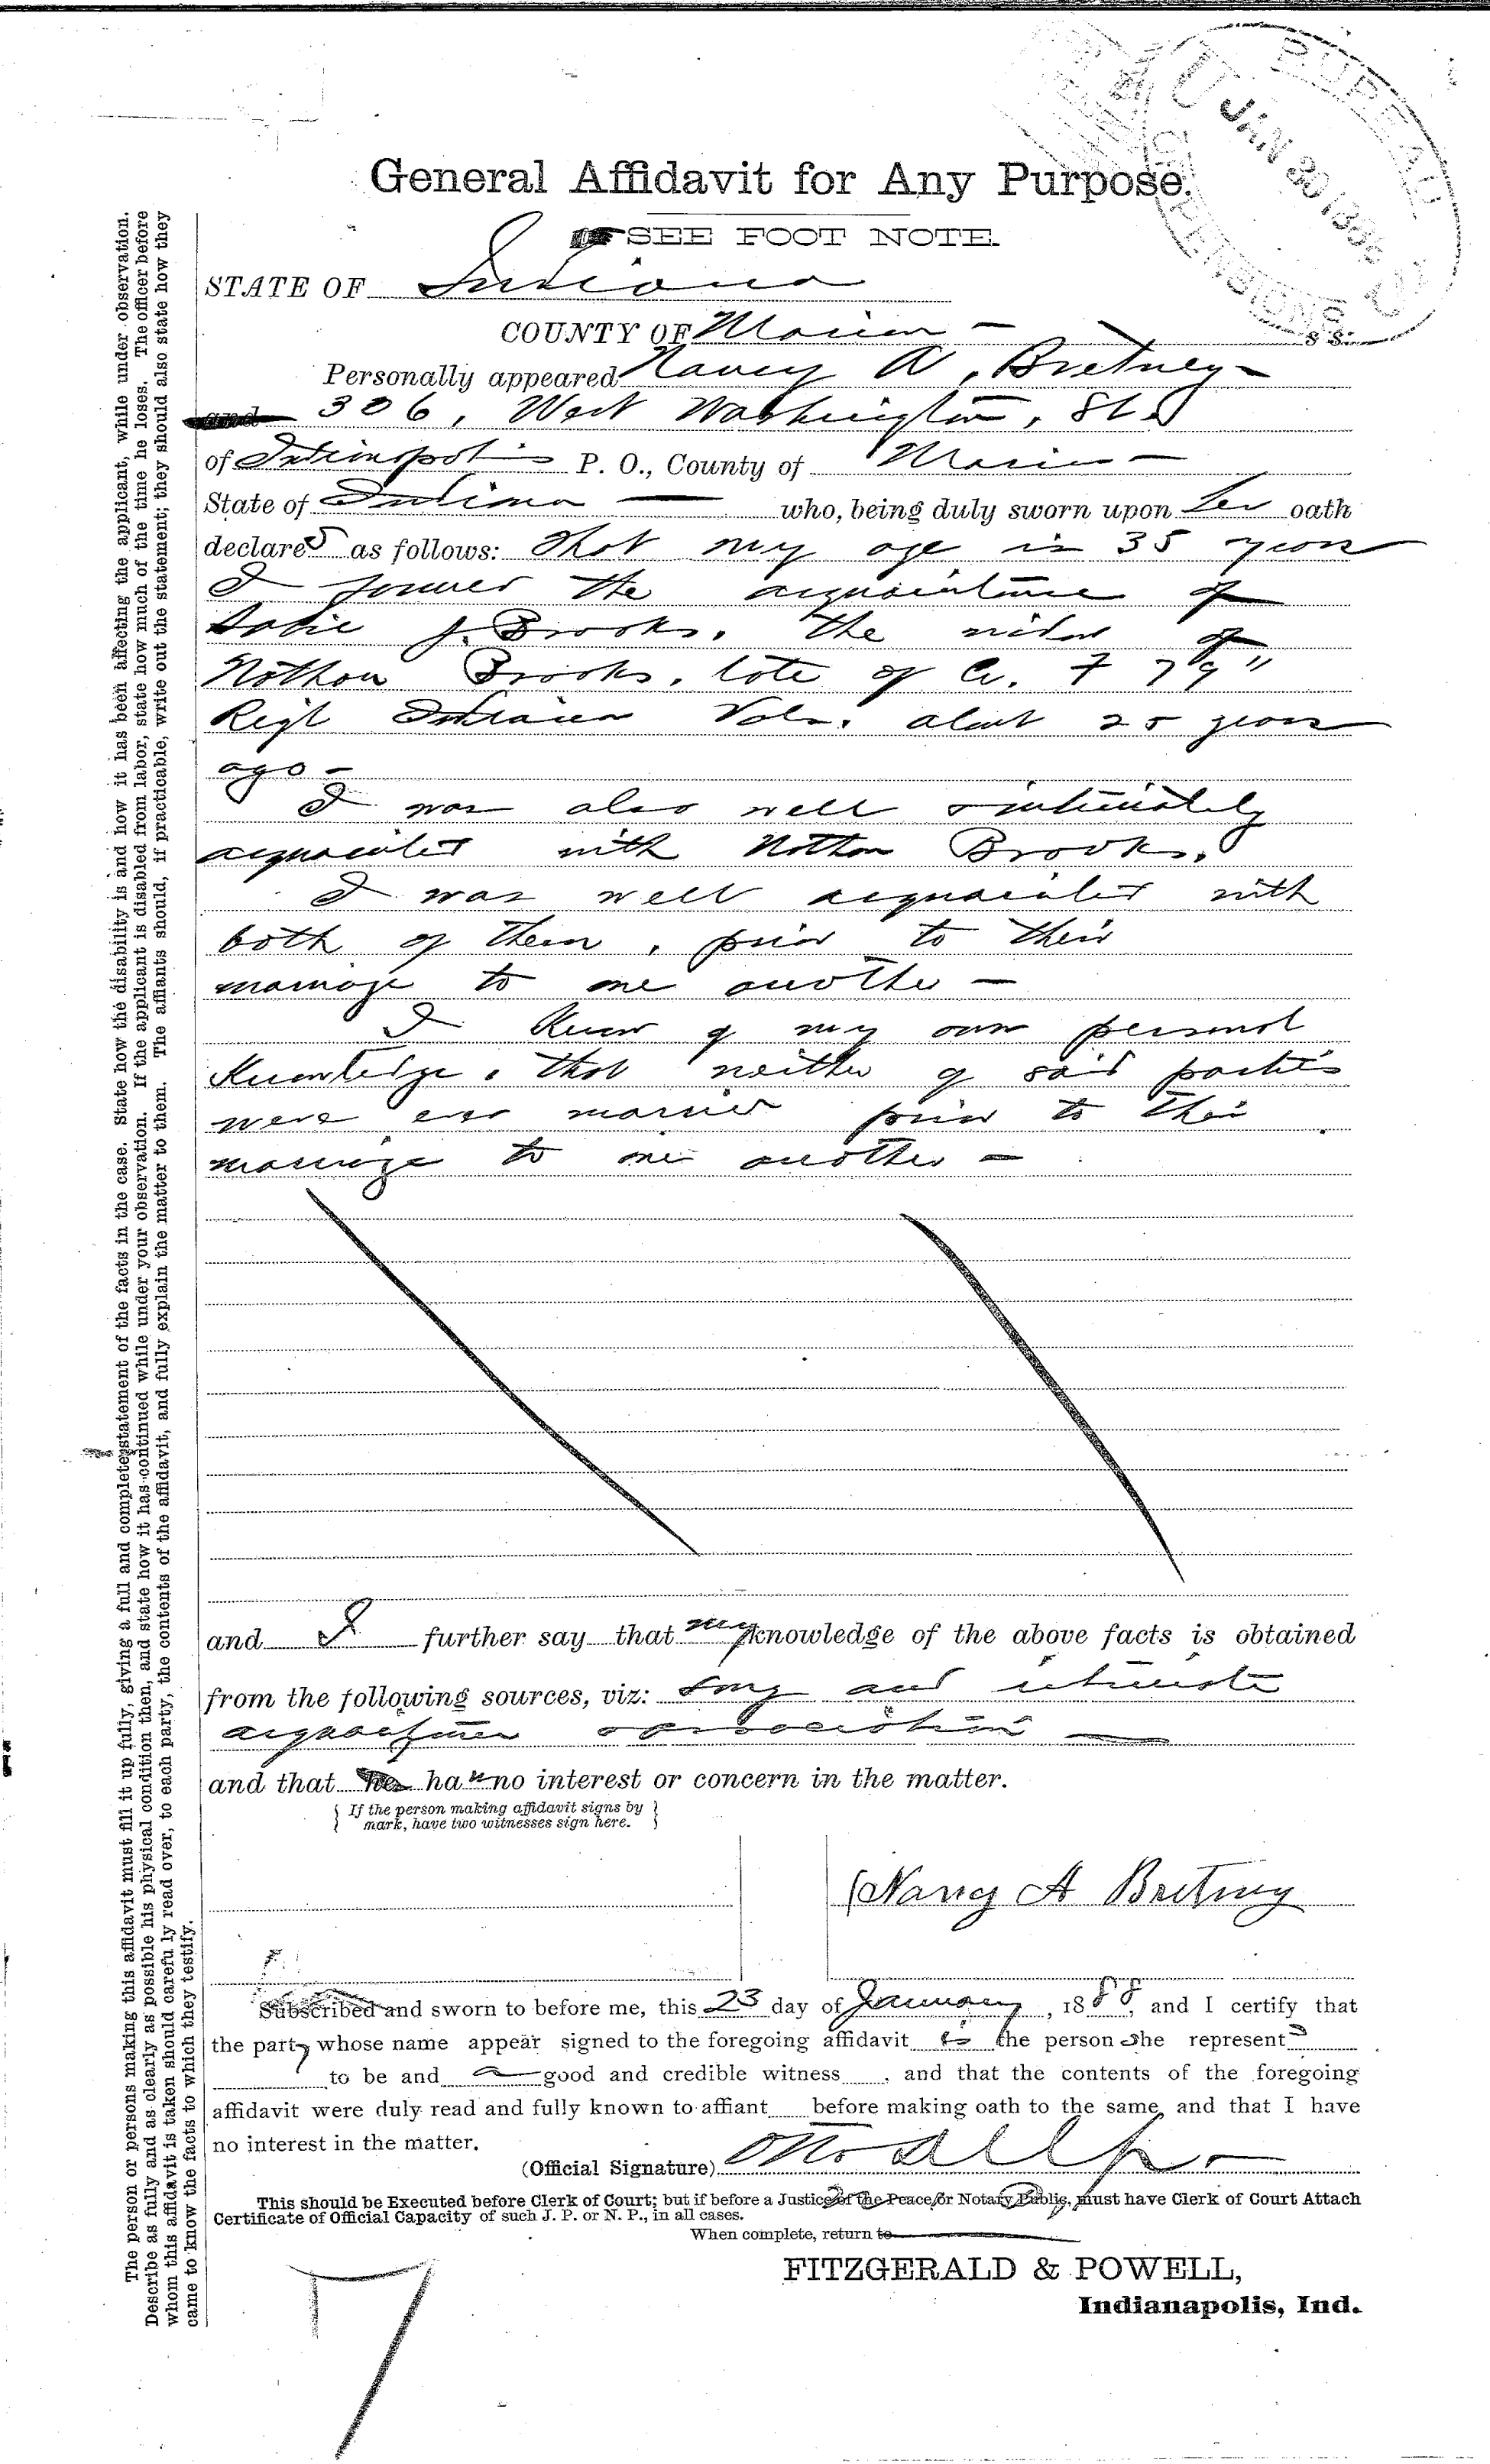 BUREAU
JAN 30 1888
PENSIONS
General Affidavit for Any Purpose.
SEE FOOT NOTE.
STATE OF Indiana
COUNTY OF Marion — ss:
Personally appeared Nancy A, Bretney —
and 306, West Washington, St
of Indianapolis P. O., County of Marion —
State of Indiana — who, being duly sworn upon her oath
declares as follows: That my age is 35 years
I formed the acquaintance of
J. Brooks. The widow of
Nathan Brooks, late of Co. F 79"
Regt Indiana Vols. about 25 years
ago —
I was also well & intimately
acquainted with Nathan Brooks.
I was well acquainted with
both of them, prior to their
marriage to one another —
I know of my own personal
Knowledge, that neither of said parties
were ever married prior to their
marriage to one another —
and I further say that my knowledge of the above facts is obtained
from the following sources, viz: Long and intimate
acquaintance & association —
and that he has no interest or concern in the matter.
{ If the person making affidavit signs by }
{ mark, have two witnesses sign here. }
(Nancy A Bretney
Subscribed and sworn to before me, this 23 day of January, 1888, and I certify that
the party whose name appear signed to the foregoing affidavit is the person she represents
to be and a good and credible witness, and that the contents of the foregoing
affidavit were duly read and fully known to affiant before making oath to the same, and that I have
no interest in the matter.
(Official Signature)
This should be Executed before Clerk of Court; but if before a Justice of the Peace, or Notary Public, must have Clerk of Court Attach
Certificate of Official Capacity of such J. P. or N. P., in all cases.
When complete, return to
FITZGERALD & POWELL,
Indianapolis, Ind.
7
The person or persons making this affidavit must fill it up fully, giving a full and complete statement of the facts in the case. State how the disability is and how it has been affecting the applicant, while under observation.
Describe as fully and as clearly as possible his physical condition then, and state how it has continued while under your observation. If the applicant is disabled from labor, state how much of the time he loses. The officer before
whom this affidavit is taken should carefully read over, to each party, the contents of the affidavit, and fully explain the matter to them. The affiants should, if practicable, write out the statement; they should also state how they
came to know the facts to which they testify.